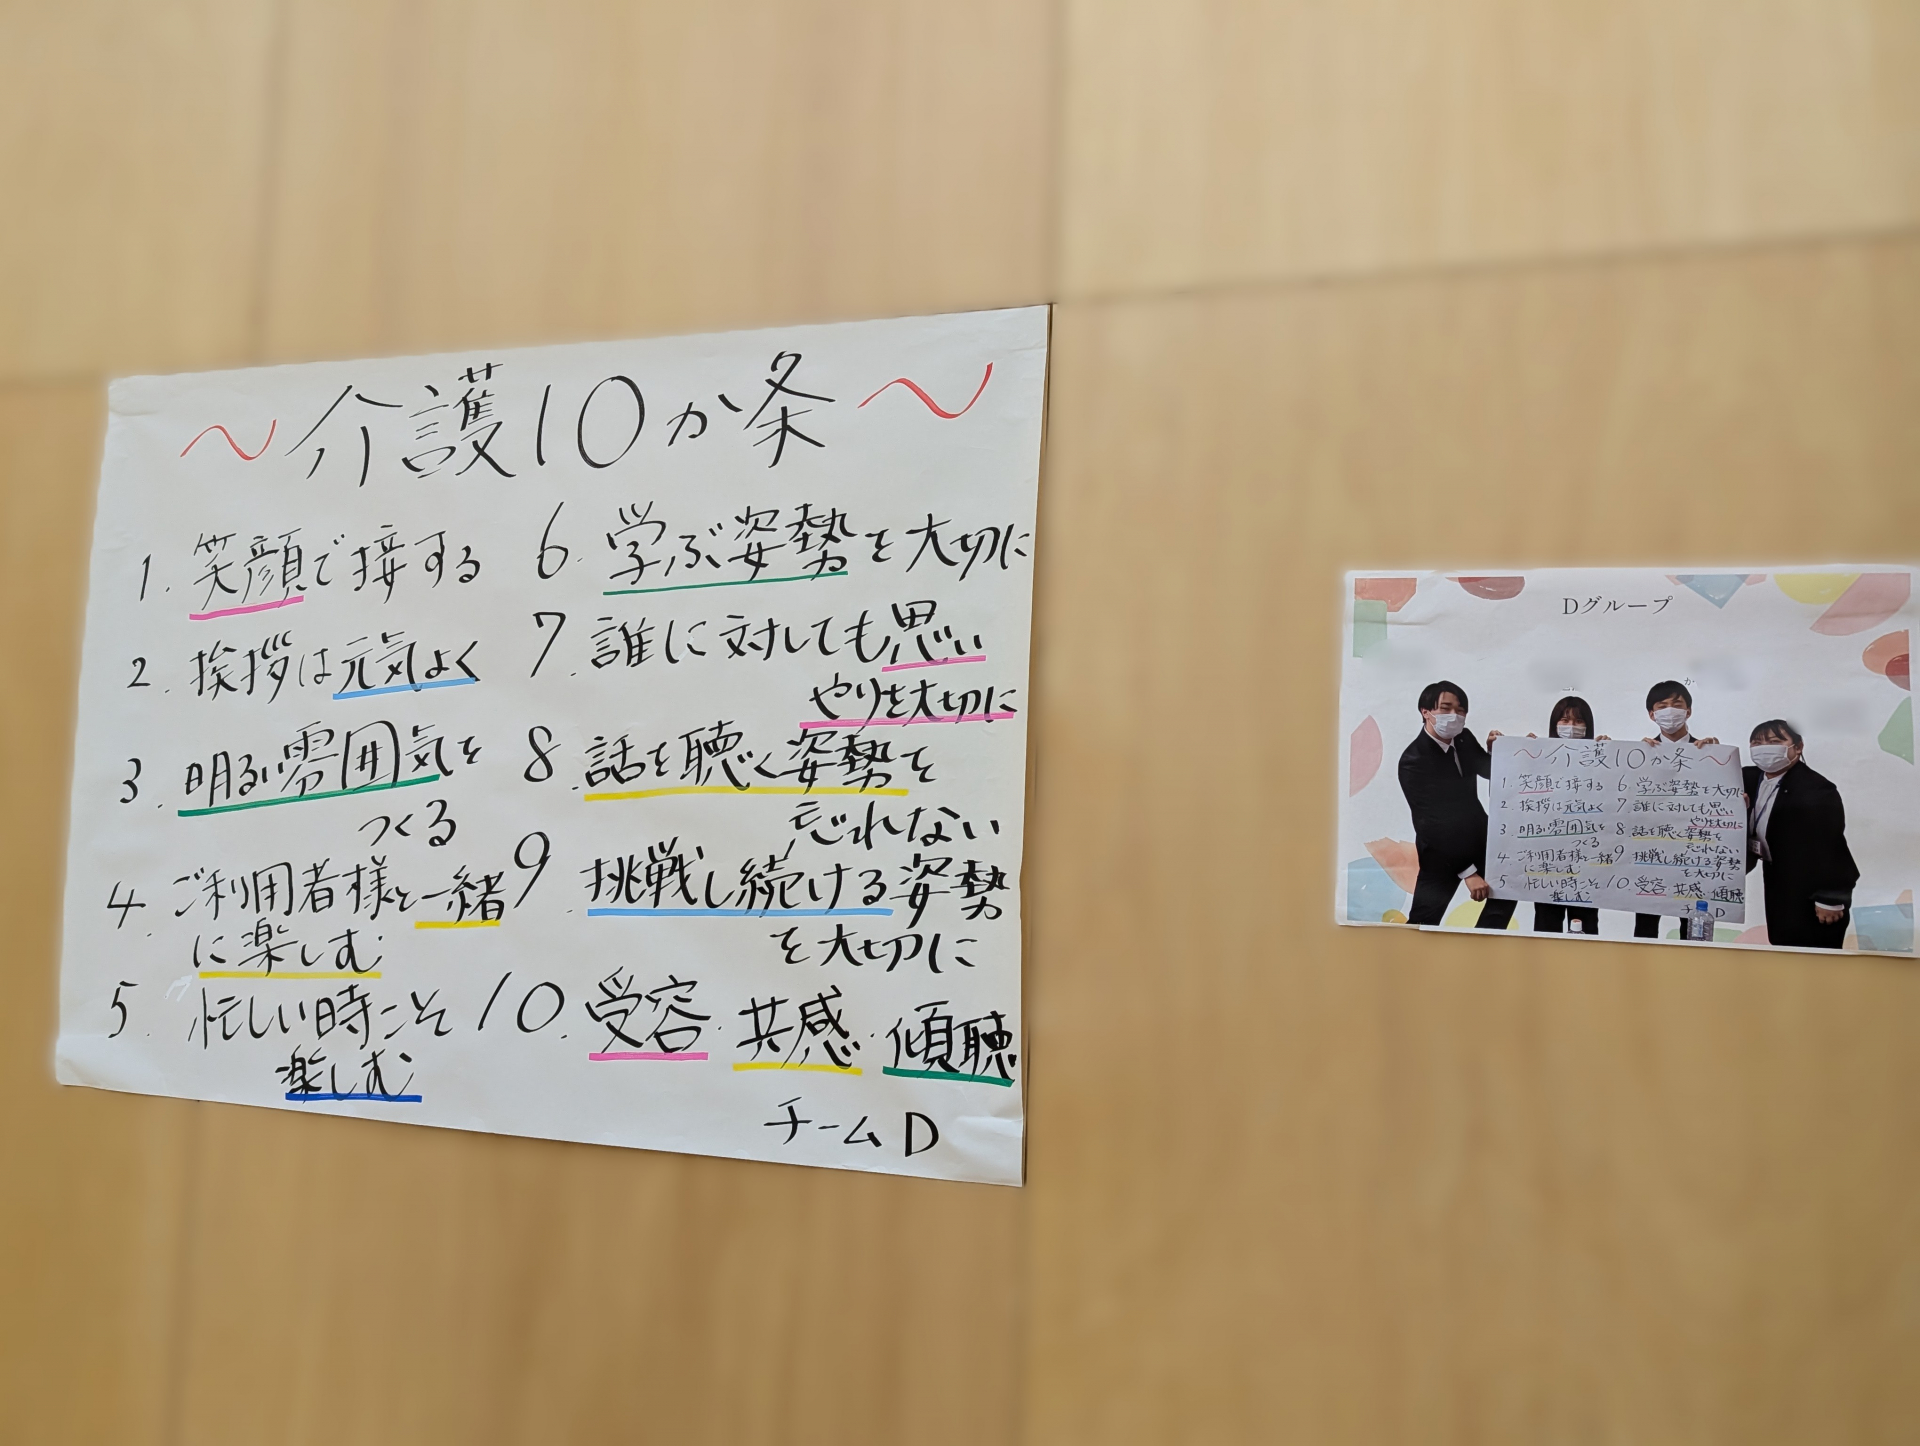 ～介護10か条～
1. 笑顔で接する
2. 挨拶は元気よく
3. 明るい雰囲気を
つくる
4. ご利用者様と一緒
に楽しむ
5. 忙しい時こそ
楽しむ
6. 学ぶ姿勢を大切に
7. 誰に対しても思い
やりを大切に
8. 話を聴く姿勢を
忘れない
9. 挑戦し続ける姿勢
を大切に
10. 受容・共感・傾聴
チームD
Dグループ
か
～介護10か条～
1. 笑顔で接する
2. 挨拶は元気よく
3. 明るい雰囲気を
つくる
4. ご利用者様と一緒
に楽しむ
5. 忙しい時こそ
楽しむ
6. 学ぶ姿勢を大切に
7. 誰に対しても思い
やりを大切に
8. 話を聴く姿勢を
忘れない
9. 挑戦し続ける姿勢
を大切に
10. 受容・共感・傾聴
チ D